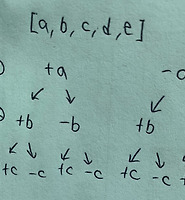 [a,b,c,d,e]
+a
+b -b +b
+c -c +c -c +c -c